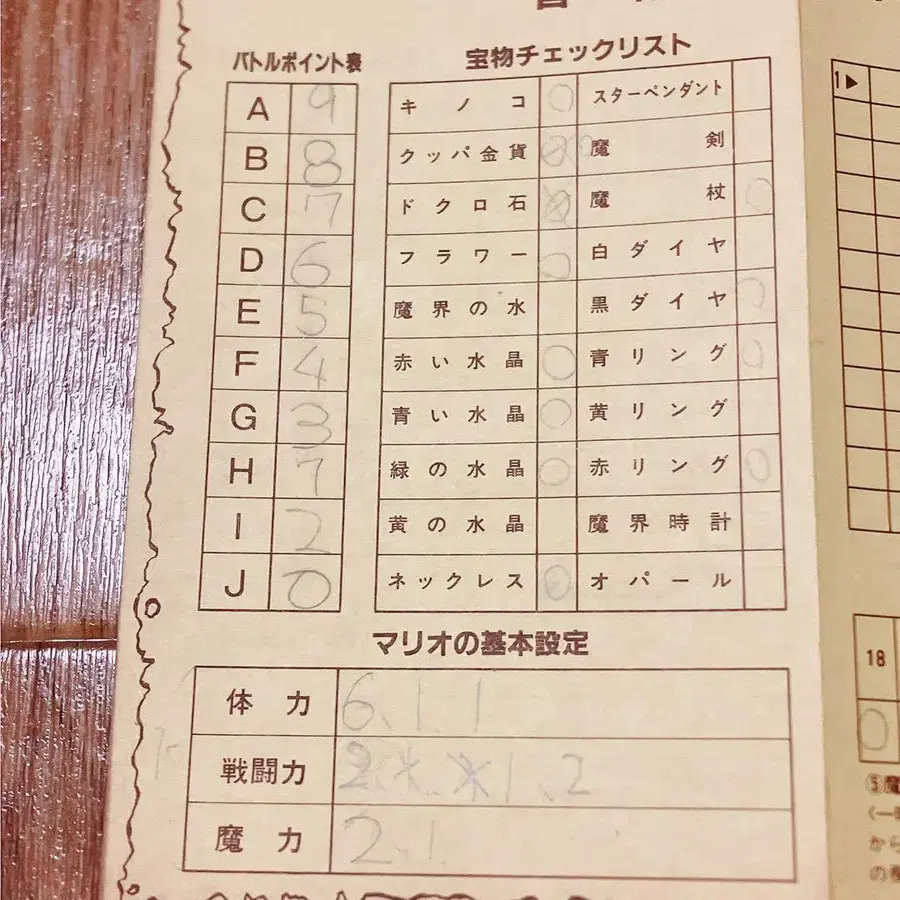 バトルポイント表
A 9
B 8
C 7
D 6
E 5
F 4
G 3
H 7
I 2
J 0
宝物チェックリスト
キノコ ○ スターペンダント
クッパ金貨 魔剣
ドクロ石 魔杖 ○
フラワー ○ 白ダイヤ
魔界の水 黒ダイヤ ○
赤い水晶 ○ 青リング ○
青い水晶 ○ 黄リング
緑の水晶 ○ 赤リング ○
黄の水晶 魔界時計
ネックレス ○ オパール
マリオの基本設定
体力 6、1 1
戦闘力 1、2
魔力 2、1
1▶
18
○
⑤魔
(一
から
の